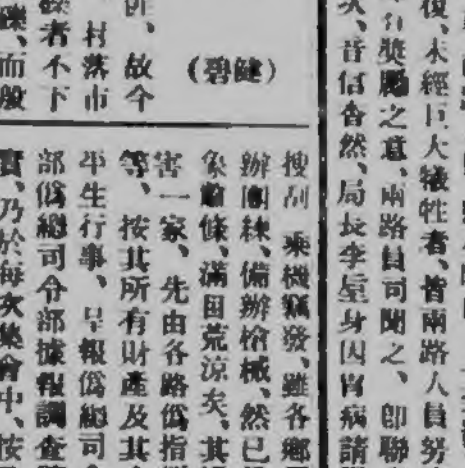 復、未經巨大犧牲者、皆兩路人員努
獎勵之意、兩路員司聞之、卽聯
次、音信杳然、局長李垕身因胃病請
(碧健)
乘機竊發、雖各鄉
辦團練、備辦槍械、然已
象蕭條、滿目荒涼矣、其
害一家、先由各路僞指
等、按其所有財產及其
平生行事、呈報僞總司令
部僞總司令部據報調查
實、乃於每次集會中、按
故今
村落市
者不下
礫、而般